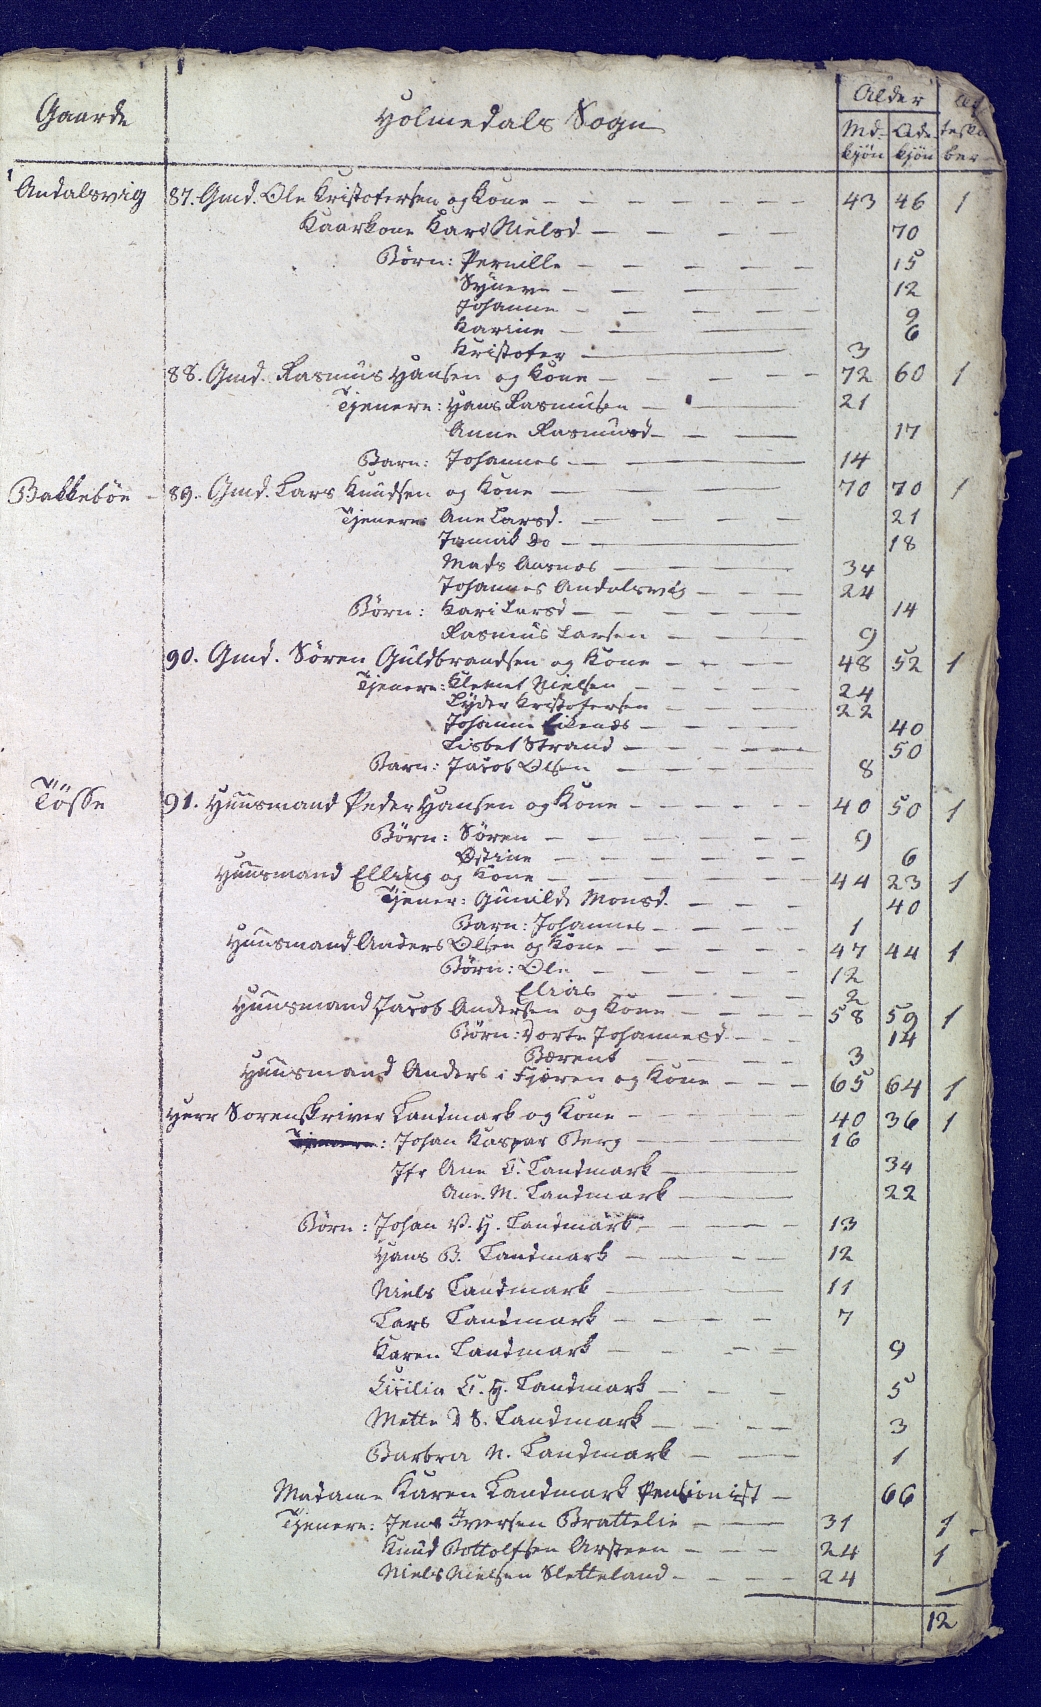 Gaarde Holmedals Sogn Alder
Md. kjön Qde kjön
Andalsvig 87. Gmd. Ole Kristofersen og Kone 43 46 1
Kaarkone Kari Nielsd 70
Börn: Pernille 15
Syneve 12
Johanne 9
Karine 6
Kristofer 3
88. Gmd. Rasmus Hansen og Kone 72 60 1
Tjenere: Hans Rasmusen 21
Anne Rasmusd 17
Barn: Johannes 14
Bakkeböe 89. Gmd. Lars Knudsen og Kone 70 70 1
Tjenere Ane Larsd. 21
Jannik do 18
Mads Aasnes 34
Johannes Andalsvig 24
Börn: Kari Larsd 14
Rasmus Larsen 9
90. Gmd. Sören Guldbrandsen og Kone 48 52 1
Tjenere: Klemet Nielsen 24
Lyder Kristofersen 22
Johanne Eikenæs 40
Lisbet Strand 50
Barn: Jacob Olsen 8
Tösse 91. Huusmand Peder Hansen og Kone 40 50 1
Börn: Sören 9
Östine 6
Huusmand Elling og Kone 44 23 1
Tjener: Gunilde Monsd. 40
Barn: Johannes 1
Huusmand Anders Olsen og Kone 47 44 1
Börn: Ole 12
Elias 2
Huusmand Jacob Andersen og Kone 58 59 1
Börn: Dorte Johannesd 14
Bærent 3
Huusmand Anders i Fjæren og Kone 65 64 1
Herr Sorenskriver Landmark og Kone 40 36 1
Tjenere: Johan Kaspar Berg 16
Jfr Ane C. Landmark 34
Ane. M. Landmark 22
Börn: Johan V. H. Landmark 13
Hans B. Landmark 12
Niels Landmark 11
Lars Landmark 7
Karen Landmark 9
Cicilia C. H. Landmark 5
Mette D S. Landmark 3
Barbra N. Landmark 1
Madame Karen Landmark Pensionist 66
Tjenere: Jens Iversen Brattelie 31 1
Knud Bottolfsen Arsteen 24 1
Niels Nielsen Sletteland 24
12